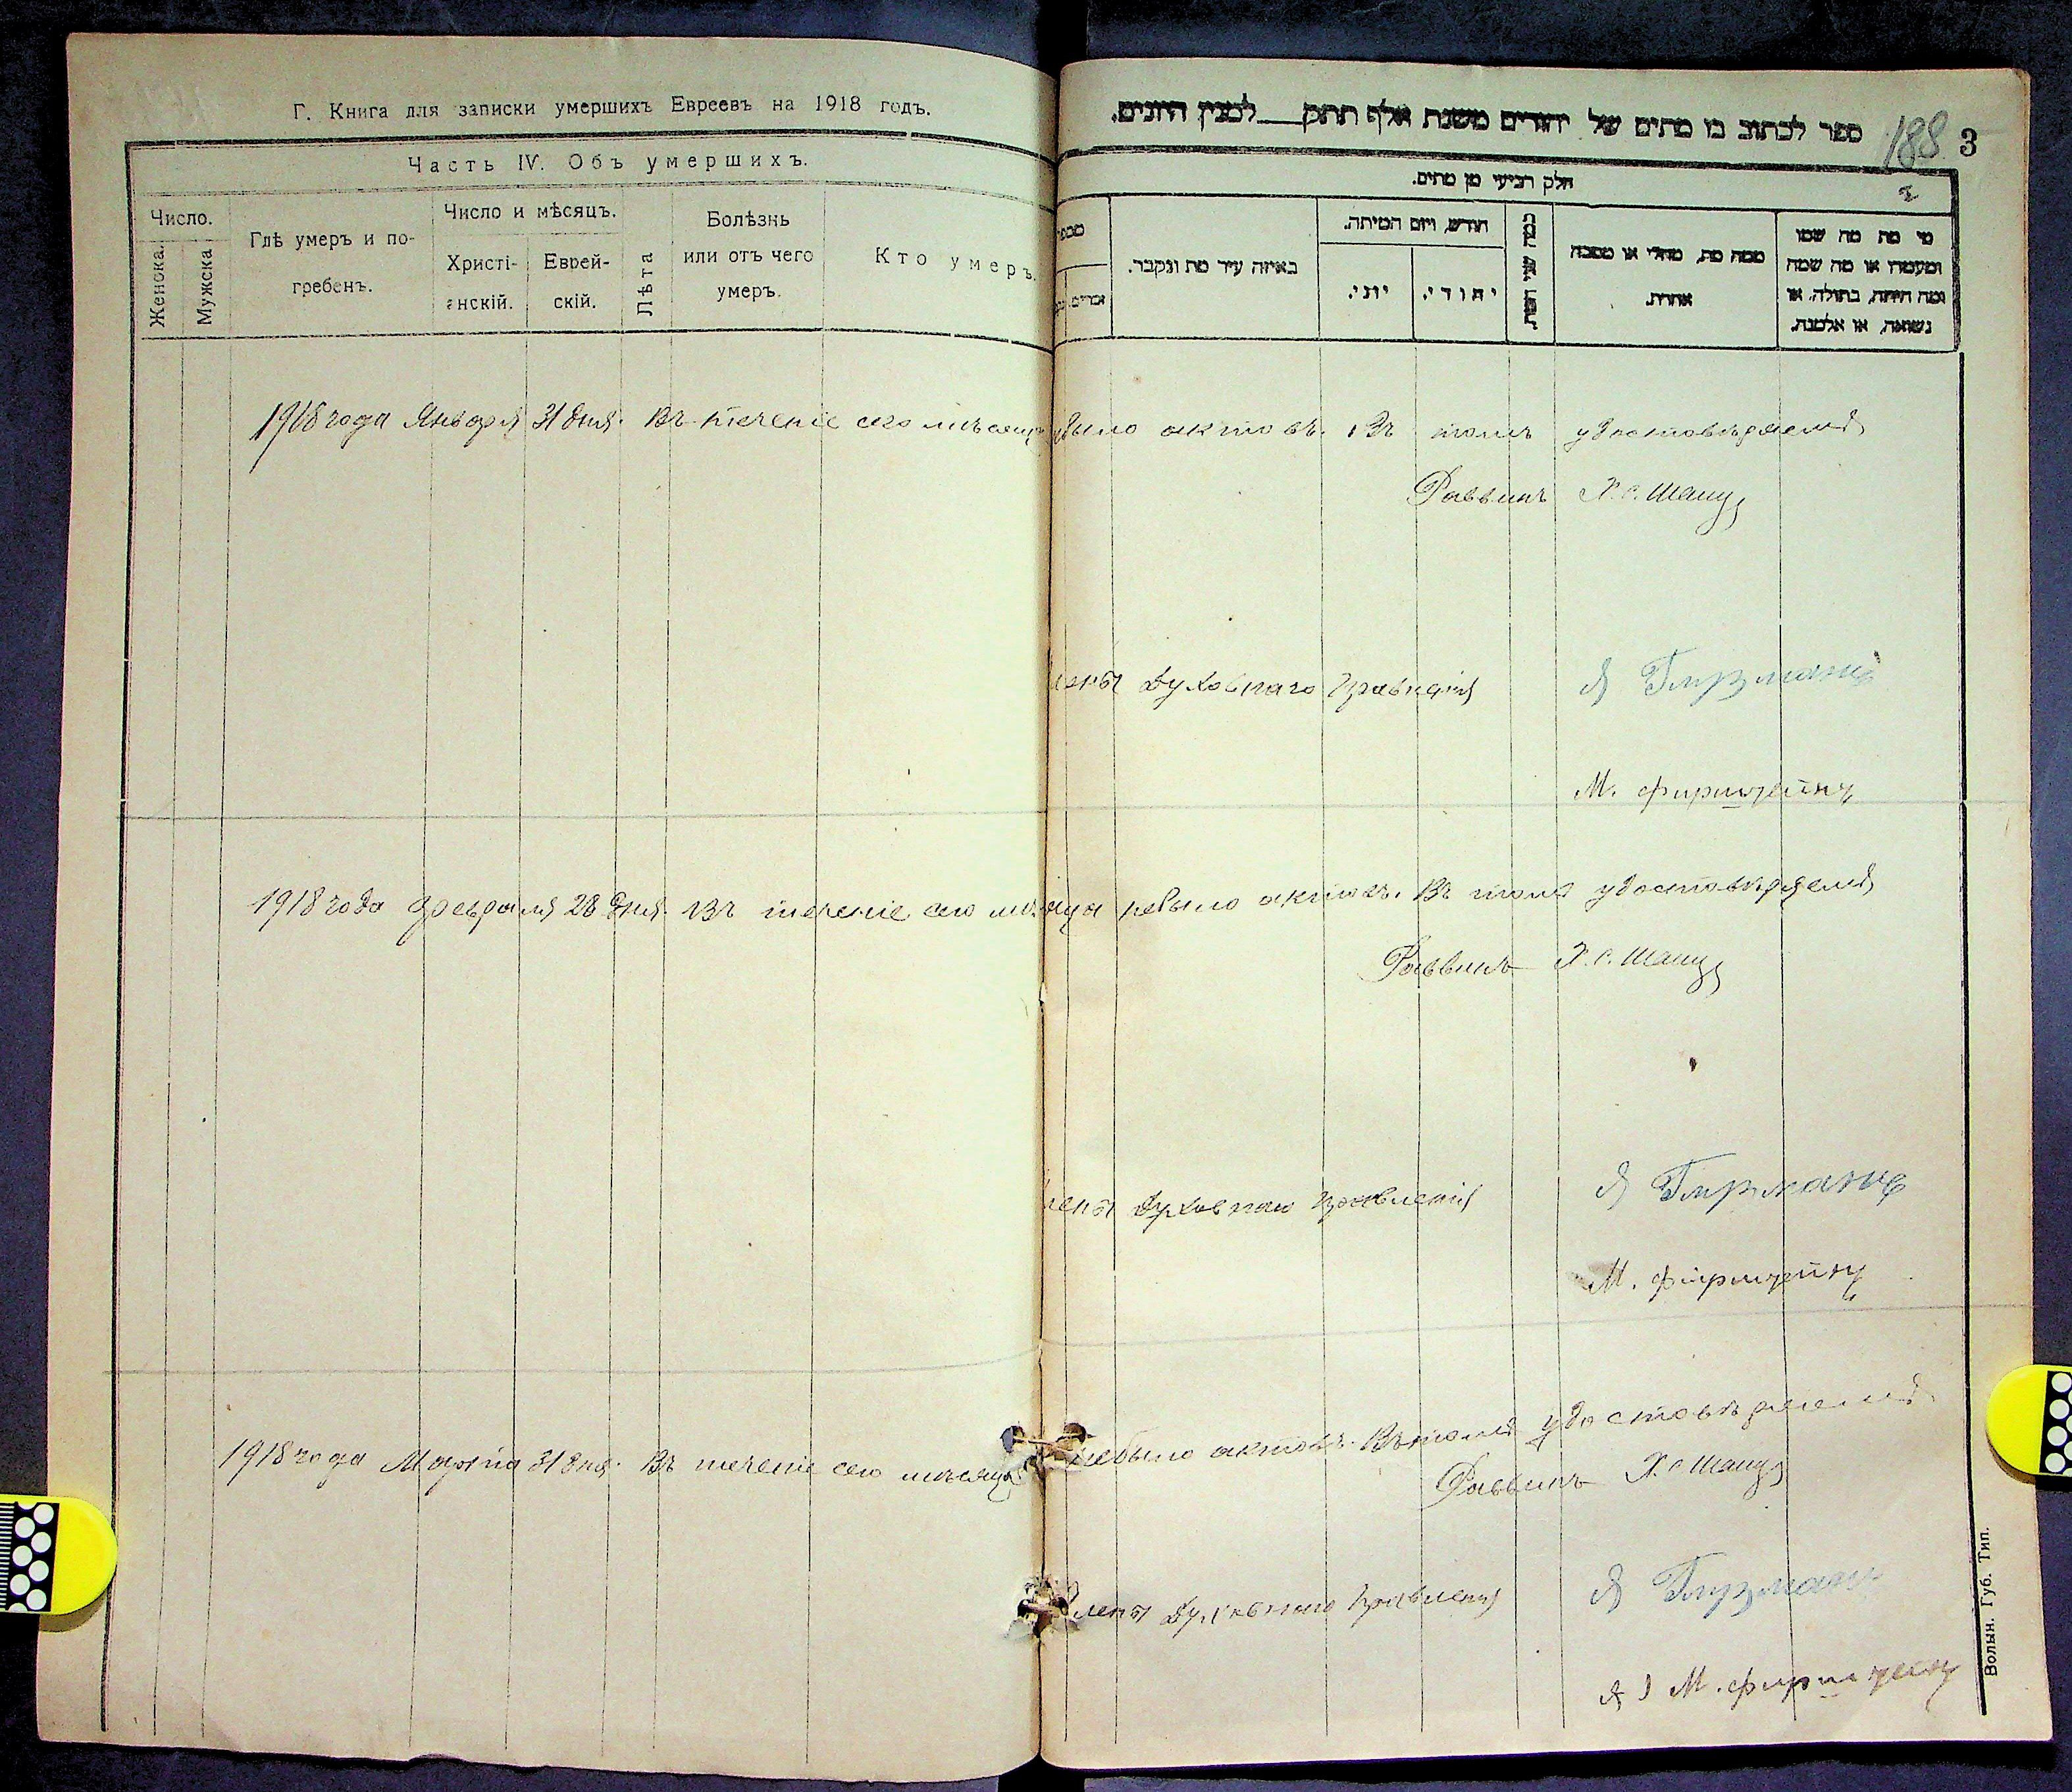 Г. Книга для записки умершихъ Евреевъ на 1918 годъ.
Часть IV. Объ умершихъ.
Число.
Женска.
Мужска
Гдѣ умеръ и по-
гребенъ.
Число и мѣсяцъ.
Христі-
анскій.
Еврей-
скій.
Лѣта
Болѣзнь
или отъ чего
умеръ.
Кто умеръ.
ספר לכתוב בו מתים של יהודים משנת אלף תתק למנין היונים.
188 3
חלק רביעי מן מתים.
מספר
באיזה עיר מת ונקבר.
חודש, ויום המיתה.
יוני.
יהודי.
כמה שני המת.
ממה מת, מחלי או מסבה
אחרת.
מי מת מה שמו
ומעמדו או מה שמה
ומה היתה, בתולה, או
נשואה, או אלמנה.
1918 года Января 31 дня. Въ теченіе сего мѣсяца было актовъ. Въ томъ удостовѣряемъ
Раввинъ Х. С. Шапц
лены Духовнаго Правленія
М. Фирштейнъ
1918 года Февраля 28 дня. Въ теченіе сего мѣсяца небыло актовъ. Въ томъ удостовѣряемъ
Раввинъ Х. С. Шапц
лены Духовнаго Правленія
М. Фирштейнъ
1918 года Марта 31 дня. Въ теченіе сего мѣсяца небыло актовъ. Въ томъ удостовѣряемъ
Раввинъ Х. С. Шапц
лены Духовнаго Правленія
М. Фирштейнъ
Волын. Губ. Тип.